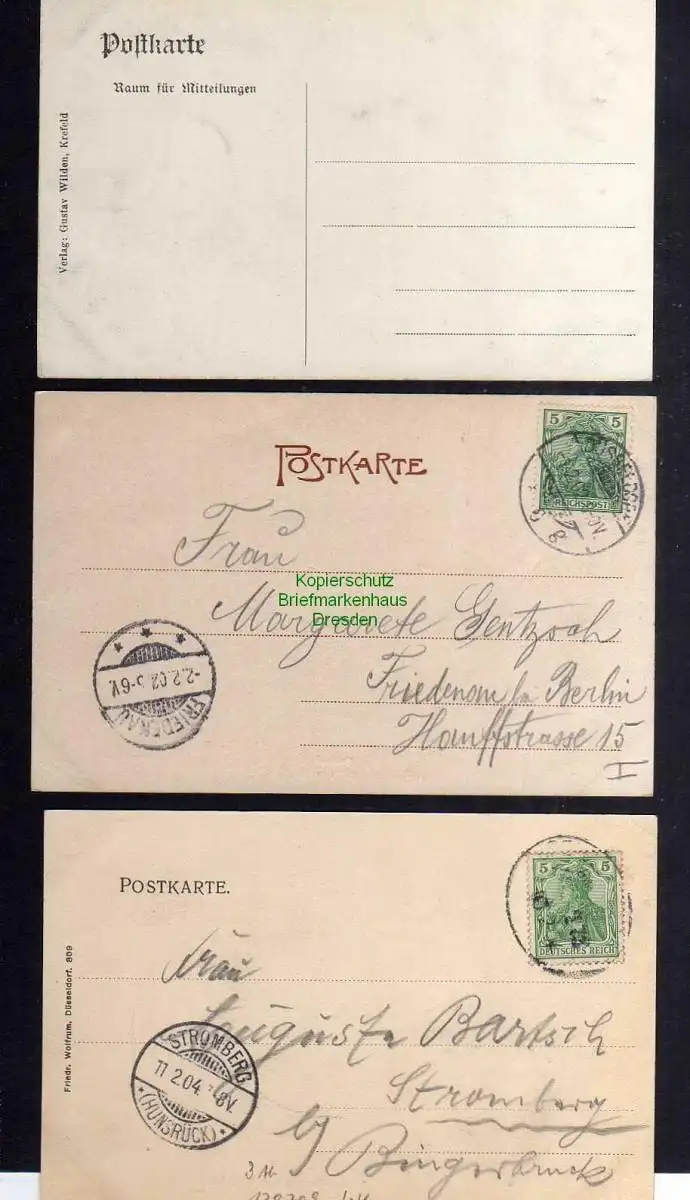 Postkarte
Raum für Mitteilungen
Verlag: Gustav Wilden, Krefeld
POSTKARTE
5 5
REICHSPOST
Frau
Kopierschutz
Briefmarkenhaus
Dresden
Margarete Gentzsch
Friedenau b. Berlin
Hauffstrasse 15
I
-2.2.02. 5-6V.
FRIEDENAU
POSTKARTE.
5 5
DEUTSCHES REICH
Friedr. Wolfrum, Düsseldorf. 809
Frau
Auguste Bartsch
Stromberg
b/ Bingerbruck
STROMBERG
11 2.04 -8V.
*(HUNSRÜCK)*